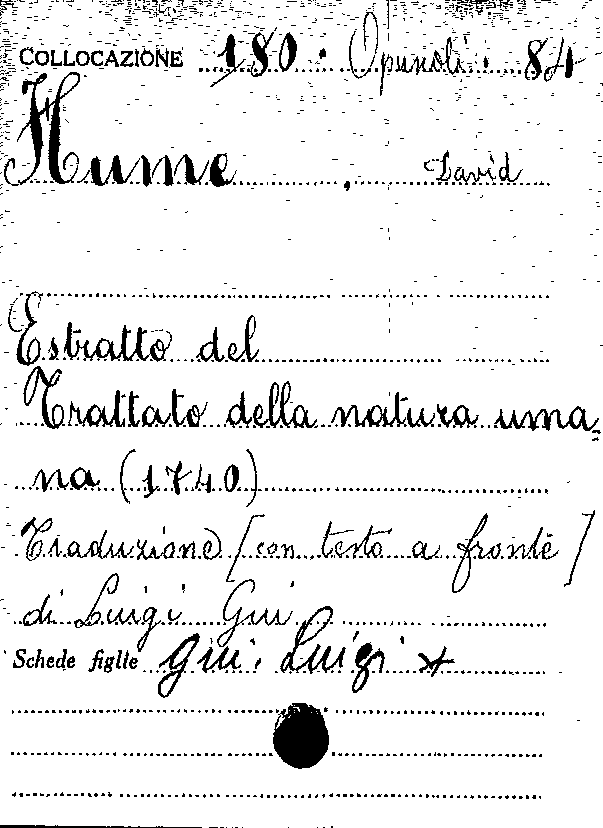 COLLOCAZIONE 180. Opuscoli. 84
Hume, David
Estratto del
Trattato della natura uma=
na (1740)
Traduzione [con testo a fronte]
di Luigi Gui.
Schede figlie Gui, Luigi *